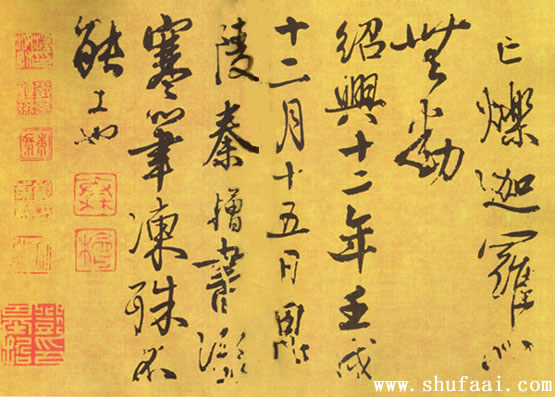 亡爍迦羅心
無少動
紹興十二年壬戌
十二月十五日
陵秦檜書深
寒筆凍殊不
能工也
www.shufaai.com